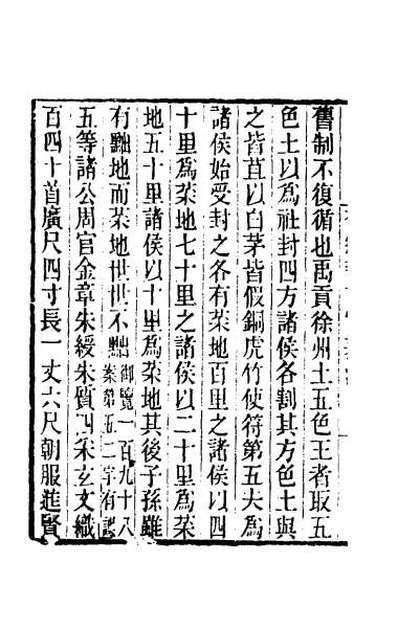 舊制不復循也禹貢徐州土五色王者取五
色土以爲社封四方諸侯各割其方色土與
之皆苴以白茅皆假銅虎竹使符第五夫爲
諸侯始受封之各有菜地百里之諸侯以四
十里爲菜地七十里之諸侯以二十里爲菜
地五十里諸侯以十里爲菜地其後子孫雖
有黜地而菜地世世不黜御覽一百九十八
案第五二字有誤
五等諸公周官金章朱綬朱質四采玄文織
百四十首廣尺四寸長一丈六尺朝服進賢